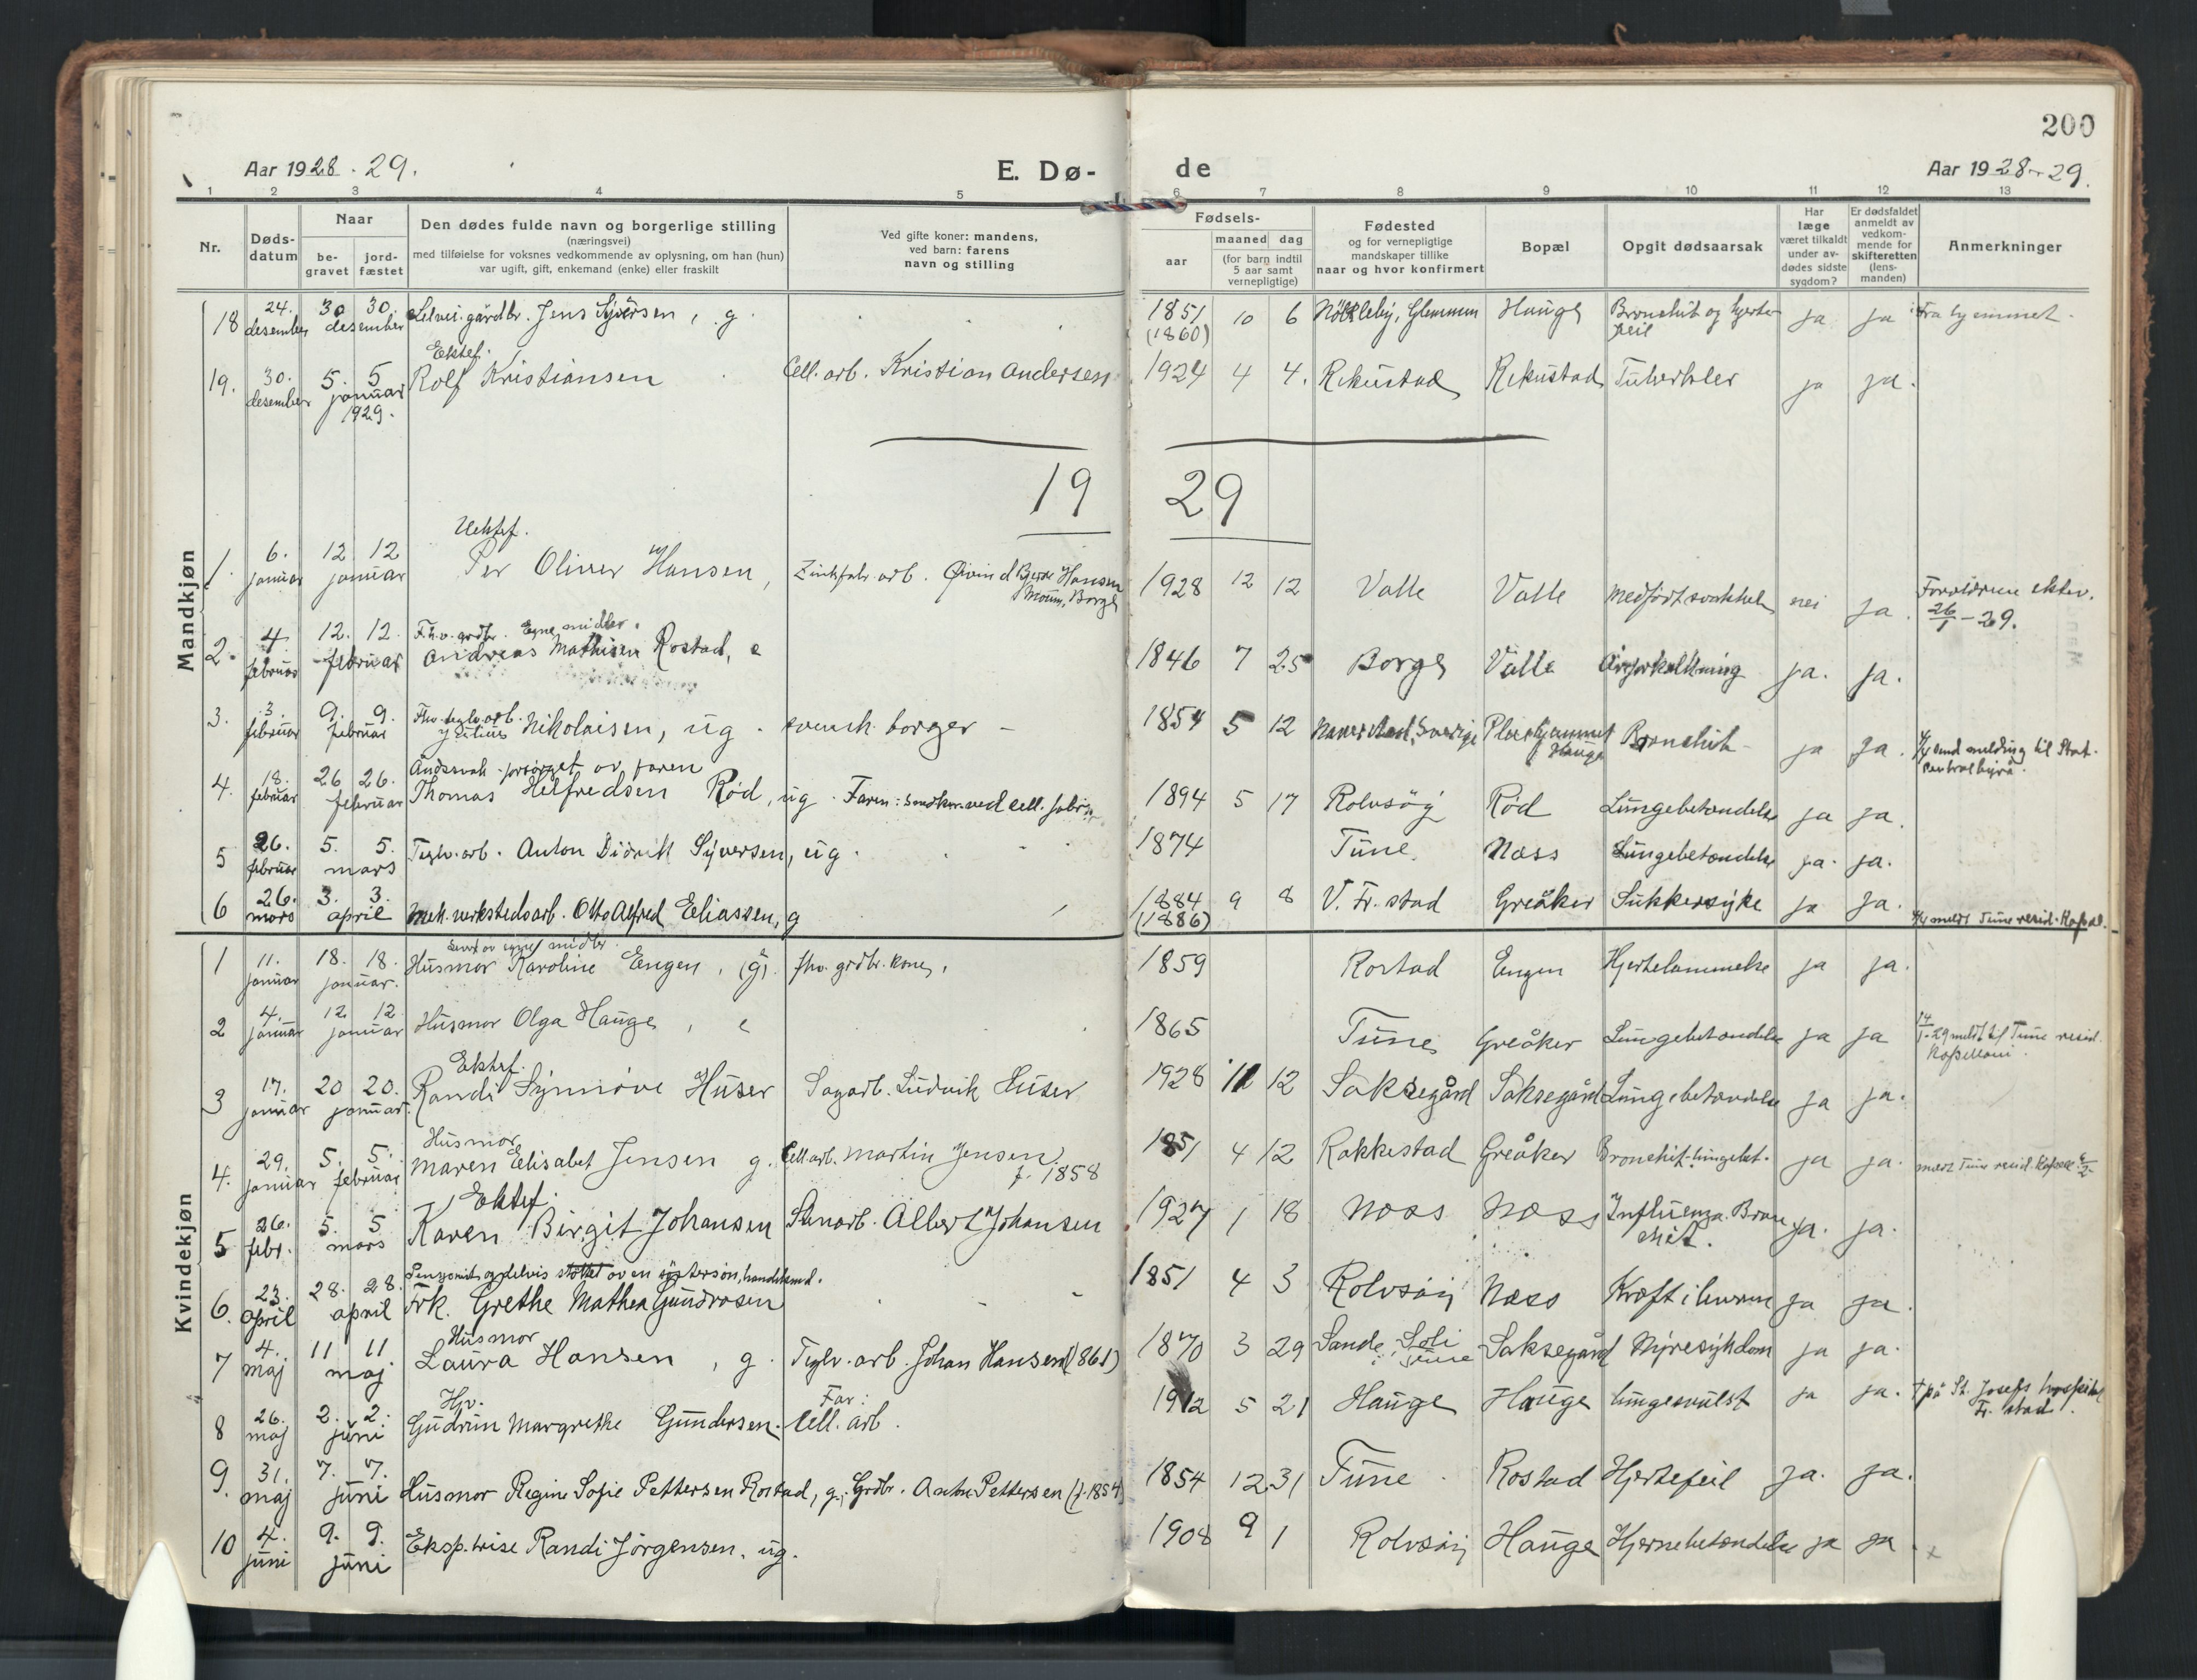 200
Aar 1928 - 29.
E. Dø-
de
Aar 1928 - 29.
1 2 3 4 5 6 7 8 9 10 11 12 13
Nr.
Døds-
datum
Naar
be-
gravet
jord-
fæstet
Den dødes fulde navn og borgerlige stilling
(næringsvei)
med tilføielse for voksnes vedkommende av oplysning, om han (hun)
var ugift, gift, enkemand (enke) eller fraskilt
Ved gifte koner: mandens,
ved barn: farens
navn og stilling
Fødsels-
aar
maaned dag
(for barn indtil
5 aar samt
vernepligtige)
Fødested
og for vernepligtige
mandskaper tillike
naar og hvor konfirmert
Bopæl
Opgit dødsaarsak
Har
læge
været tilkaldt
under av-
dødes sidste
sygdom?
Er dødsfaldet
anmeldt av
vedkom-
mende for
skifteretten
(lens-
manden)
Anmerkninger
Mandkjøn
18 24. desember 30 30. desember Selvei. gårdbr. Jens Syversen, g. 1851 (1860) 10 6 Glemmen Hauge Bronchit og hjerte-
feil ja ja Fra hjemmet.
19. 30. desember 5. 5 januar 1929. Ektef.
Rolf Kristiansen Cell. arb. Kristian Andersen 1924 4 4. Rekustad Rekustad Tuberkler ja ja.
1929
1. 6. januar 12 12 januar Uektef.
Per Oliver Hansen, Zinkfabr. arb. Øivind Bjerke Hansen
Moum, Borge 1928 12 12 Valle Valle Medfødt svakhet nei ja. Forældrene ektev.
26/1 - 29.
2. 4. februar 12. 12. februar F.h.v. grdbr. Egne midler.
Andreas Mathisen Rostad, e 1846 7 25 Borge Valle Åreforkalkning ja. ja.
3. 3. februar 9. 9. februar Fhv. teglv. arb.
Julius Nikolaisen, ug. svensk borger - 1854 5 12 Naverstad, Sverige Pleiehjemmet
Hauge Bronchit ja ja. 4/4 send melding til Stat.
sentralbyrå.
4. 18. februar 26 26. februar Åndssvak - forsørget av faren
Thomas Helfredsen Rød, ug. Faren: ved cell. fabrik 1894 5 17 Rolvsøy Rød Lungebetændelse ja ja.
5 26. februar 5. 5. mars Teglv. arb. Anton Didrik Syversen, ug. 1874 Tune. Næss Lungebetændelse ja. ja.
6 26. mars 3. 3. april Mek. verkstedsarb. Otto Alfred Eliassen, g 1884 (1886) 9 8 V. Fr. stad Greåker Sukkersyke ja ja. 4/4 meldt Tune resid. Kapel.
Kvindekjøn
1 11. januar 18. 18. januar. Levet av egne midler.
Husmor Karoline Engen, (g). fhv. grdbr. kone, 1859 Rostad Engen Hjertelammelse ja ja.
2 4. januar 12 12 januar Husmor Olga Hauge, e 1865 Tune Greåker Lungebetændelse ja ja 14/1-29 meldt til Tune resid.
Kapellani.
3 17. januar 20 20. januar. Ektef.
Randi Synnøve Huser Sagarb. Ludvik Huser 1928 11 12 Saksegård Saksegård Lungebetændelse ja ja.
4. 29. januar 5. 5. februar Husmor
Maren Elisabet Jensen g. Cell. arb. Martin Jensen
f. 1858 1851 4 12 Rakkestad Greåker Bronchit - lungebet. ja ja. meldt Tune resid. Kapell. 6/2
5 26. febr. 5. 5 mars Ektef.
Karen Birgit Johansen Stenarb. Albert Johansen 1927 1 18 Næss Næss Influenza. Bron
chit. ja. ja.
6. 23. april 28. 28. april Pensjonist og delvis støttet av en søstersøn, handelsmd.
Frk. Grethe Mathea Gundrosen 1851 4 3 Rolvsøy Næss Kræft i leveren ja ja.
7 4. maj 11 11. maj Husmor
Laura Hansen, g. Teglv. arb. Johan Hansen (1861) 1870 3 29 Sande, Soli
Tune Saksegård Nyresykdom ja ja.
8 26. maj 2. 2. juni Hjv.
Gudrun Margrethe Gundersen. Far:
Cell. arb. 1912 5 21 Hauge Hauge Lungesvulst ja ja. † på St. Josefs hospital
Fr. stad.
9. 31. maj 7. 7. juni Husmor Regine Sofie Pettersen Rostad, g. Grdbr. Anton Pettersen (f. 1854) 1854 12 31 Tune Rostad Hjertefeil ja. ja.
10 4. juni 9. 9. juni Eksp. trise Randi Jørgensen, ug. 1908 9 1 Rolvsøy Hauge Hjernebetændelse ja ja. x